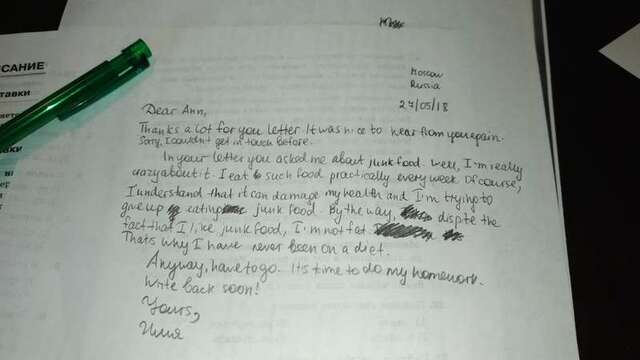 ИСАНИЕ
тавки
Moscow
Russia
27/05/18
Dear Ann,
Thanks a lot for you letter. It was nice to hear from you again.
Sorry, I couldn't get in touch before.
In your letter you asked me about junk food. Well, I'm really
crazy about it. I eat such food practically every week. Of course,
I understand that it can damage my health and I'm trying to
give up eating junk food. By the way, dispite the
fact that I like junk food, I'm not fat.
That's why I have never been on a diet.
Anyway, have to go. It's time to do my homework.
Write back soon!
Yours,
Имя